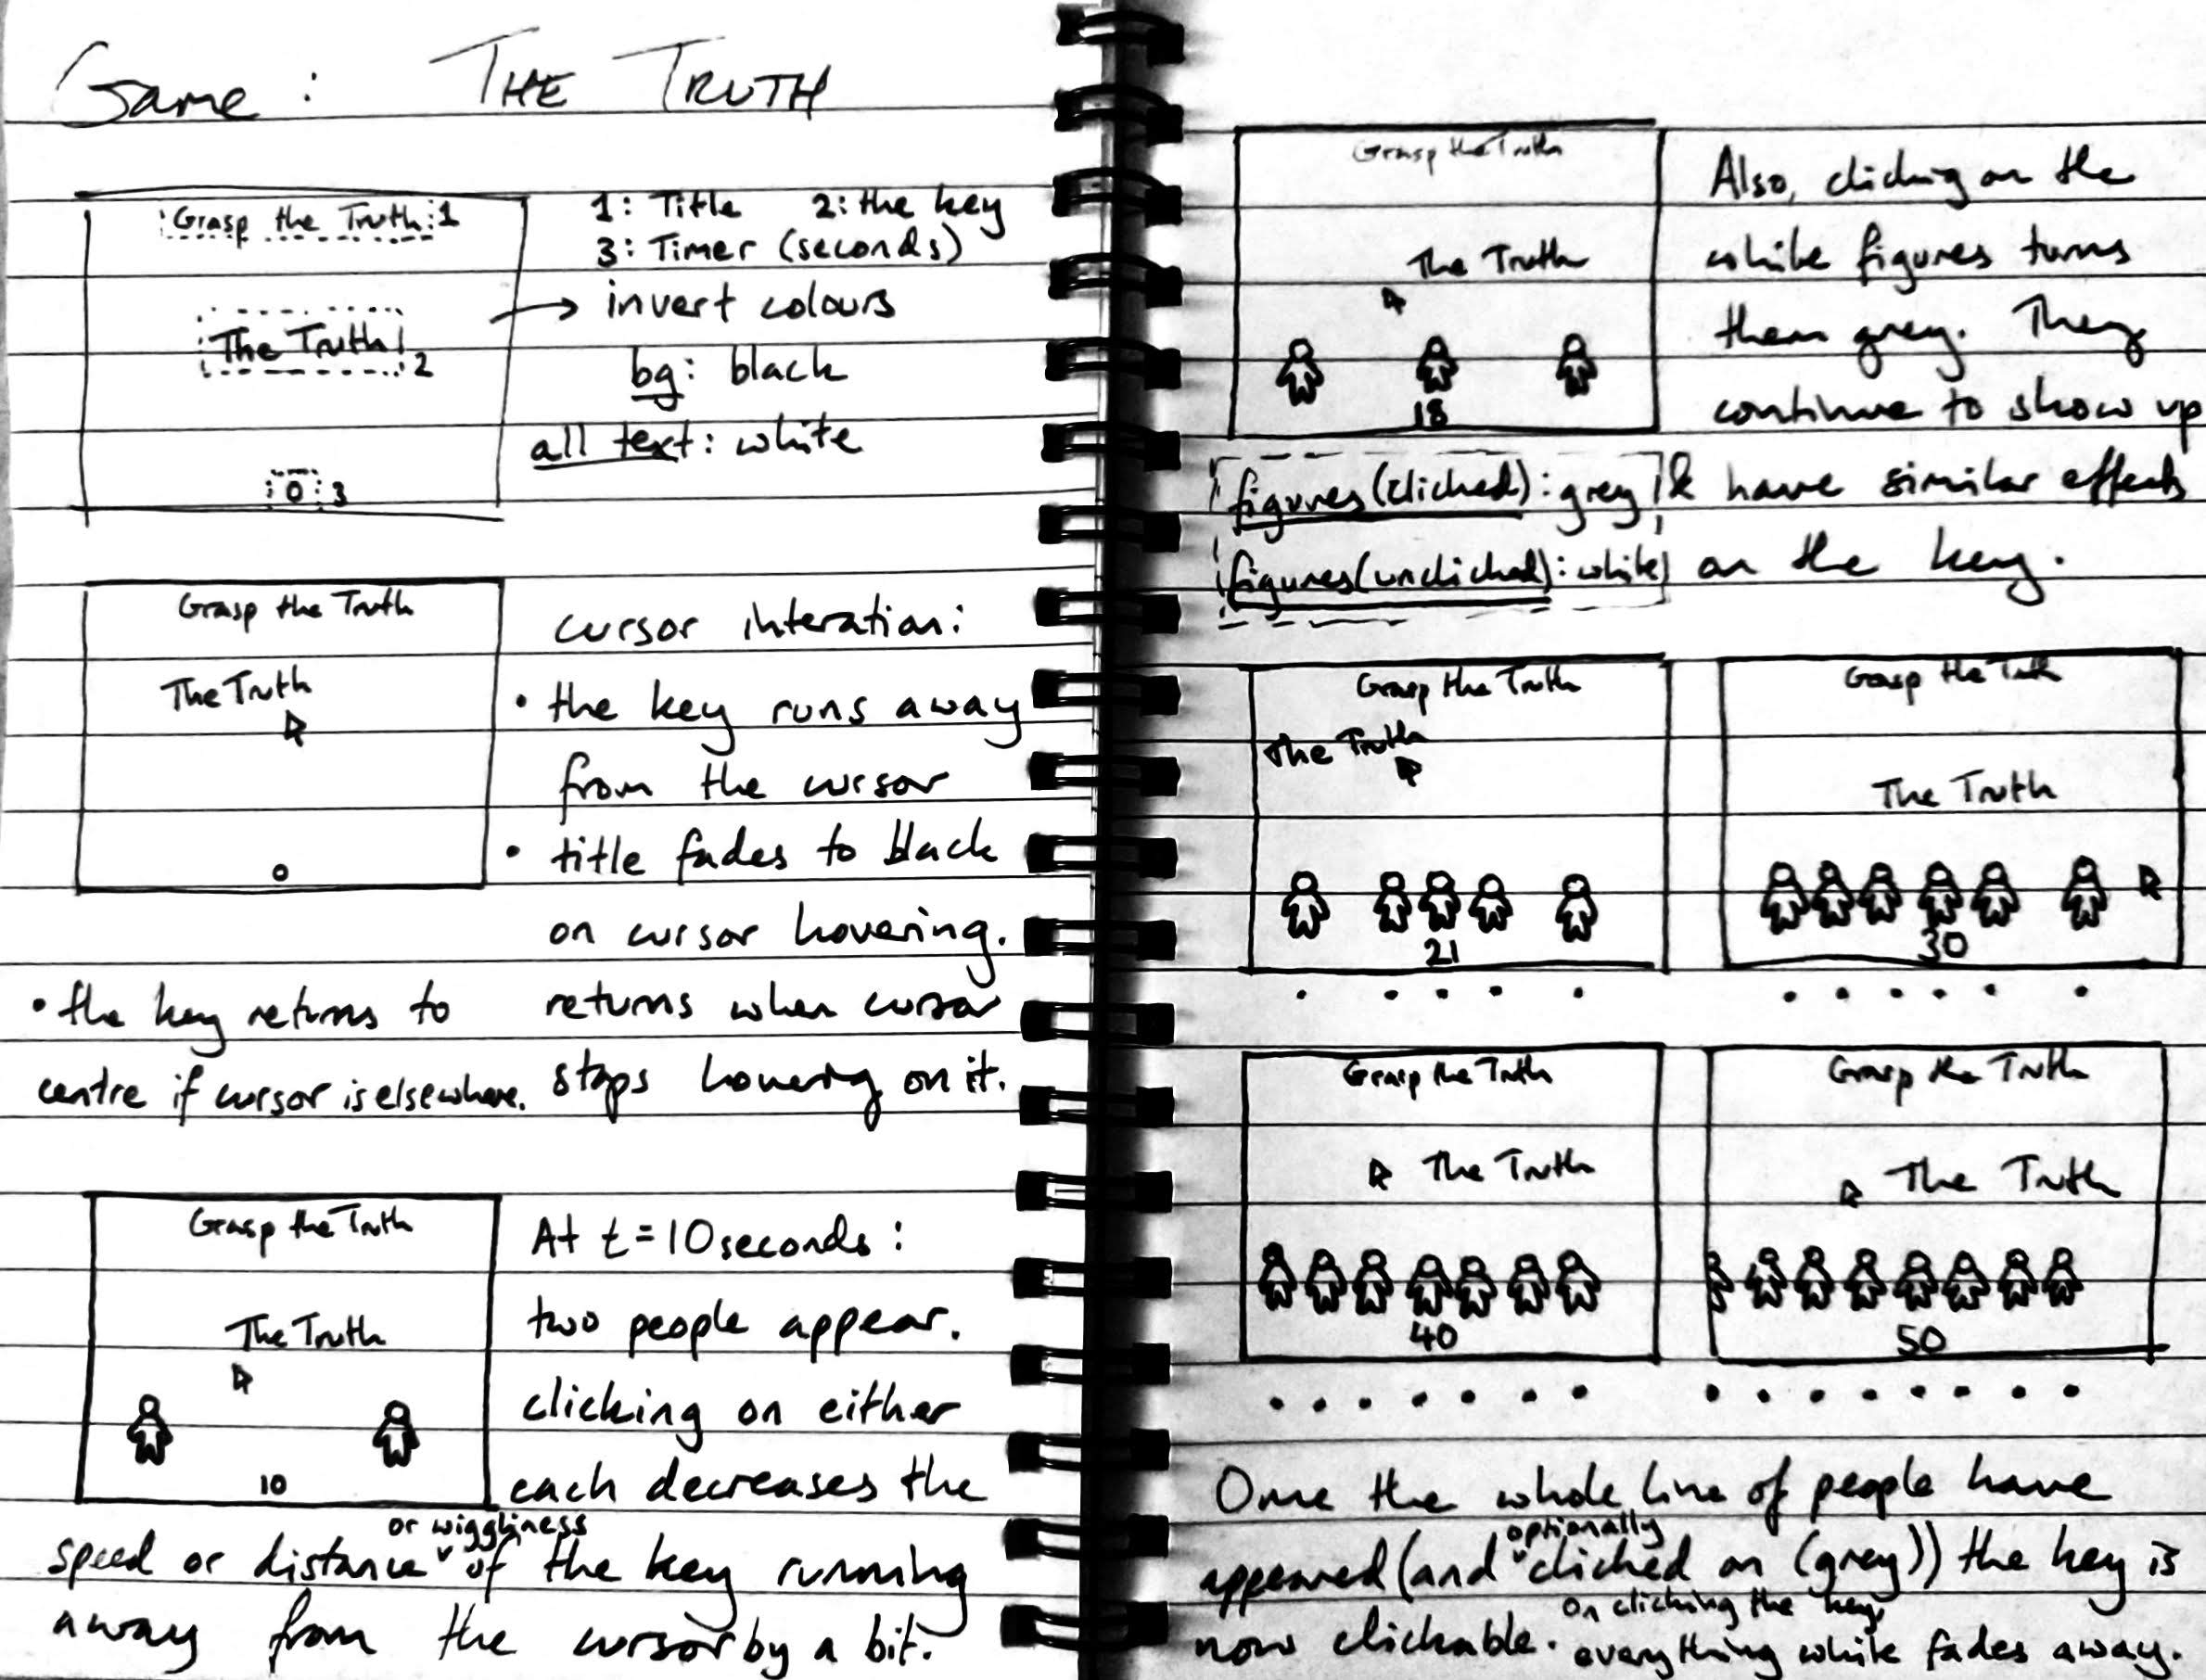 Game: THE TRUTH
Grasp the Truth 1
The Truth 2
0 3
1: Title 2: the key
3: Timer (seconds)
→ invert colours
bg: black
all text: white
Grasp the Truth
The Truth
0
cursor interation:
• the key runs away
from the cursor
• title fades to black
on cursor hovering.
returns when cursor
stops hovering on it.
• the key returns to
centre if cursor is elsewhere.
Grasp the Truth
The Truth
10
At t=10seconds:
two people appear.
clicking on either
each decreases the
speed or distance or wiggliness of the key running
away from the cursor by a bit.
Grasp the Truth
The Truth
18
Also, clicking on the
white figures turns
them grey. They
continue to show up
& have similar effects
on the key.
figures(clicked): grey
figures(unclicked): white
Grasp the Truth
The Truth
21
Grasp the Truth
The Truth
30
Grasp the Truth
The Truth
40
Grasp the Truth
The Truth
50
Once the whole line of people have
appeared (and optionally clicked on (grey)) the key is
now clickable. On clicking the key, everything white fades away.